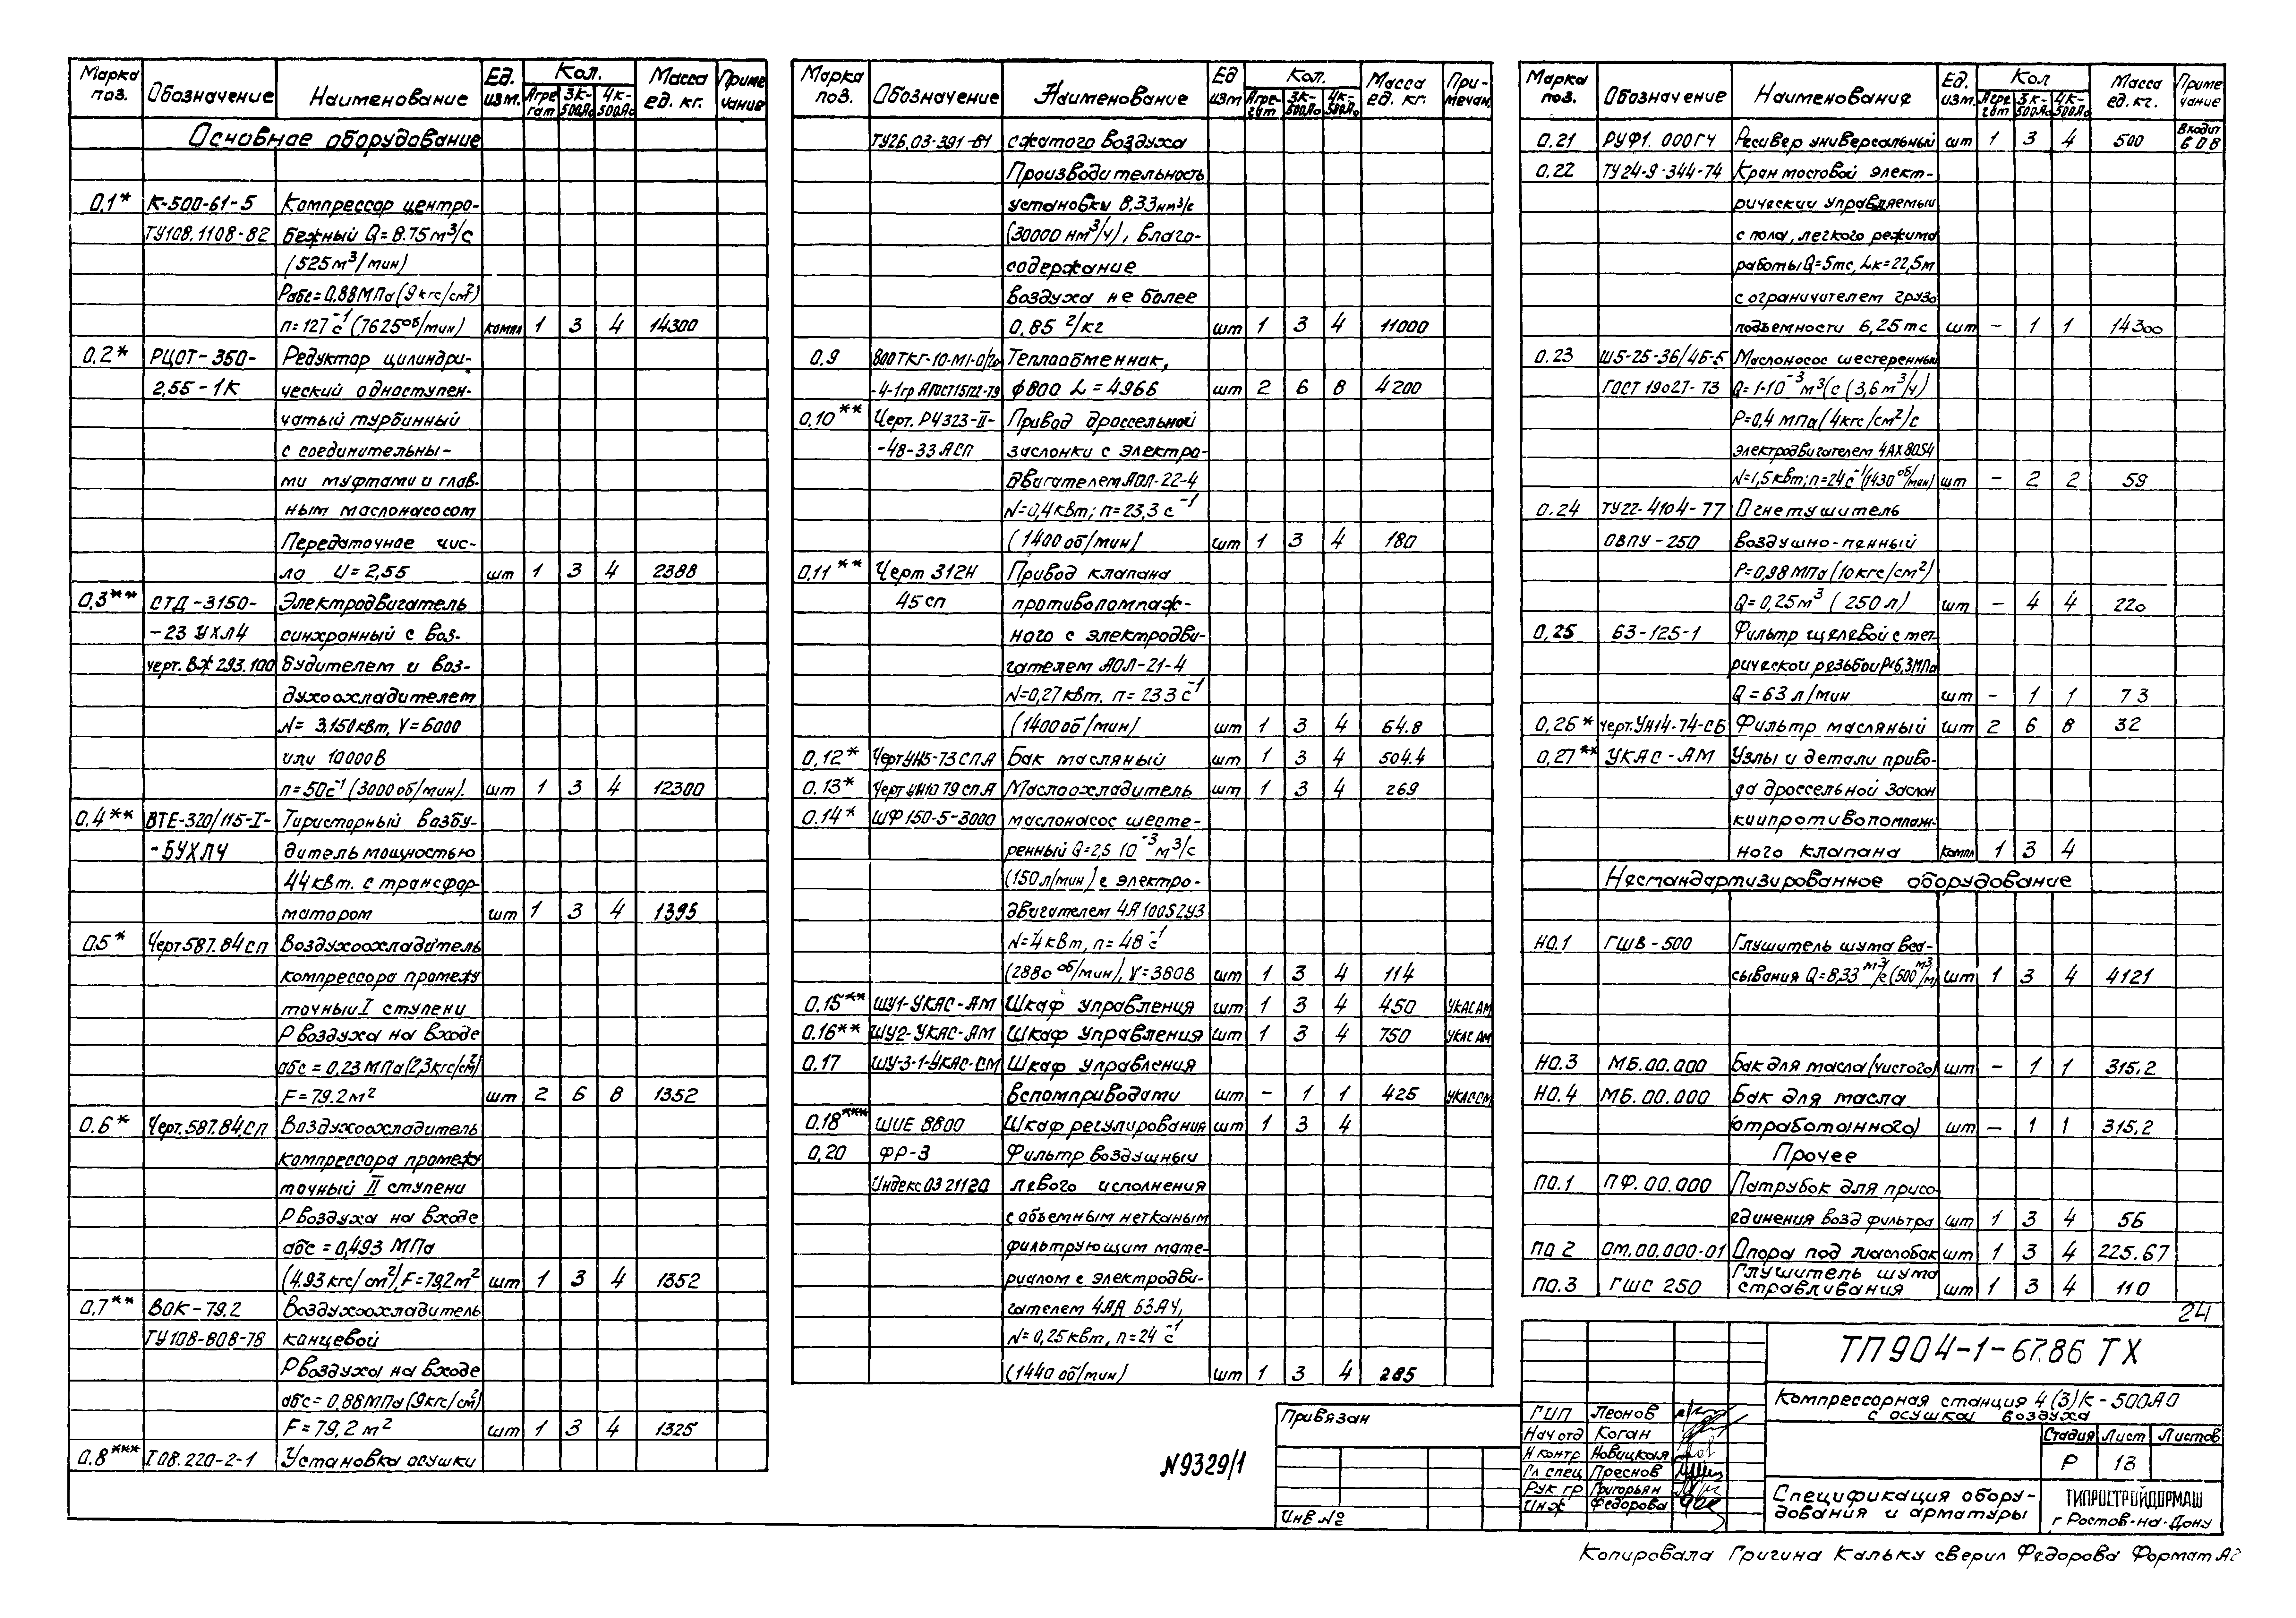 Марка поз. Обозначение Наименование Ед. изм. Кол. Агрегат 3К-500Ао 4К-500Ао Масса ед. кг. Примечание
Основное оборудование
0,1* К-500-61-5 Компрессор центро-
ТУ108.1108-82 бежный Q=8.75м³/с
(525м³/мин)
Рабс=0,88МПа(9кгс/см²)
п=127с⁻¹(7625об/мин) компл 1 3 4 14300
0,2* РЦОТ-350- Редуктор цилиндри-
2,55-1К ческий одноступен-
чатый турбинный
с соединительны-
ми муфтами и глав-
ным маслонасосом
Передаточное чис-
ло U=2,55 шт 1 3 4 2388
0,3** СТД-3150- Электродвигатель
-23 УХЛ4 синхронный с воз-
черт. ВЖ 293.100 будителем и воз-
духоохладителем
N= 3,150квт, V=6000
или 10000В
п=50с⁻¹(3000об/мин). шт 1 3 4 12300
0,4** ВТЕ-320/115-I- Тиристорный возбу-
-БУХЛЧ дитель мощностью
44квт. с трансфор-
матором шт 1 3 4 1395
0.5* Черт587.84сп Воздухоохладитель
компрессора промежу
точный I ступени
Р воздуха на входе
абс=0,23МПа(2,3кгс/см²)
F=79.2м² шт 2 6 8 1352
0.6* Черт.587.84.сп Воздухоохладитель
компрессора промежу
точный II ступени
Р воздуха на входе
абс=0,493 МПа
(4.93кгс/см²), F=79,2м² шт 1 3 4 1352
0,7** ВОК-79,2 Воздухоохладитель
ТУ108-808-78 концевой
Р воздуха на входе
абс=0,88МПа(9кгс/см²)
F=79,2 м² шт 1 3 4 1325
0.8*** I08.220-2-1 Установка осушки
Марка поз. Обозначение Наименование Ед изм Кол. Агре-гат 3К-500Ао 4К-500Ао Масса ед. кг. При-мечан.
ТУ26.03-391-81 сжатого воздуха
Производительность
установки 8,33нм³/с
(30000 нм³/ч), влаго-
содержание
воздуха не более
0,85 г/кг шт 1 3 4 11000
0,9 800ТКГ-10-М1-0/20 Теплообменник,
-4-1гр АГОСТ15122-79 ф800 L=4966 шт 2 6 8 4200
0,10** Черт. РЧ323-II- Привод дроссельной
-48-33 АСП заслонки с электро-
двигателем АОЛ-22-4
N=0,4квт; п=23,3 с⁻¹
(1400об/мин) шт 1 3 4 180
0,11** Черт 312Н Привод клапана
45сп противопомпаж-
ного с электродви-
гателем АОЛ-21-4
N=0,27квт. п=233 с⁻¹
(1400об/мин) шт 1 3 4 64.8
0,12* ЧертУН5-73СПА Бак масляный шт 1 3 4 504.4
0,13* Черт УН1079спА Маслоохладитель шт 1 3 4 269
0.14* ШФ150-5-3000 маслонасос шесте-
ренный Q=2,5 10⁻³м³/с
(150л/мин) с электро-
двигателем 4А100S2У3
N=4квт, п=48с⁻¹
(2880об/мин), V=380В шт 1 3 4 114
0,15** ШУ1-УКАС-АМ Шкаф управления шт 1 3 4 450 УКАСАМ
0,16** ШУ2-УКАС-АМ Шкаф управления шт 1 3 4 750 УКАС АМ
0,17 ШУ-3-1-УКАС-СМ Шкаф управления
вспомприводами шт - 1 1 425 УКАССМ
0,18*** ШИЕ 8800 Шкаф регулирования шт 1 3 4
0,20 ФР-3 Фильтр воздушный
Индекс 03 21120 левого исполнения
с объемным нетканым
фильтрующим мате-
риалом с электродви-
гателем 4АА 63А4,
N=0,25квт, п=24 с⁻¹
(1440об/мин) шт 1 3 4 285
Марка поз. Обозначение Наименование Ед. изм. Кол Агрегат 3К-500Ао 4К-500Ао Масса ед.кг. Примечание
0.21 РУФ1.000ГЧ Ресивер универсальный шт 1 3 4 500 Входит в 0 8
0.22 ТУ24-9-344-74 Кран мостовой элект-
рический управляемый
с пола, легкого режима
работы Q=5тс, Lк=22,5м
с ограничителем грузо
подъемности 6,25тс шт - 1 1 14300
0.23 Ш5-25-36/4Б-5 Маслонасос шестеренный
ГОСТ 19027-73 Q=1·10⁻³м³/с (3,6м³/ч)
Р=0,4 МПа(4кгс/см²)/с
электродвигателем 4АХ80S4
N=1,5квт; п=24с⁻¹(1430об/мин) шт - 2 2 59
0.24 ТУ22-4104-77 Огнетушитель
ОВПУ-250 воздушно-пенный
Р=0,98МПа(10кгс/см²)
Q=0,25м³ (250л) шт - 4 4 220
0,25 63-125-1 Фильтр щелевой с мет-
рической резьбой Р=6,3МПа
Q=63 л/мин шт - 1 1 73
0,26* черт.УН14-74-СБ Фильтр масляный шт 2 6 8 32
0,27** УКАС-АМ Узлы и детали приво-
да дроссельной заслон
ки и противопомпаж-
ного клапана компл 1 3 4
Нестандартизированное оборудование
Н0.1 ГШВ-500 Глушитель шума вса-
сывания Q=8,33м³/с(500м³/м) шт 1 3 4 4121
Н0.3 МБ.00.000 Бак для масла(чистого) шт - 1 1 315,2
Н0.4 МБ.00.000 Бак для масла
(отработанного) шт - 1 1 315,2
Прочее
П0.1 ПФ.00.000 Патрубок для присо
единения возд фильтра шт 1 3 4 56
П0 2 ОМ.00.000-01 Опора под маслобак шт 1 3 4 225.67
П0.3 ГШС 250 Глушитель шума стравливания шт 1 3 4 110
24
ТП904-1-67.86 ТХ
Компрессорная станция 4(3)К-500АО
с осушкой воздуха
Стадия Лист Листов
Р 13
Спецификация обору-
дования и арматуры
ГИПРОСТРОЙДОРМАШ
г Ростов-на-Дону
ГИП Леонов
Нач отд Коган
Н контр Новицкая
Гл спец Преснов
Рук гр Григорьян
Инж Федорова
Привязан
Инв №
N9329/1
Копировала Григина Кальку сверил Федорова Формат А2